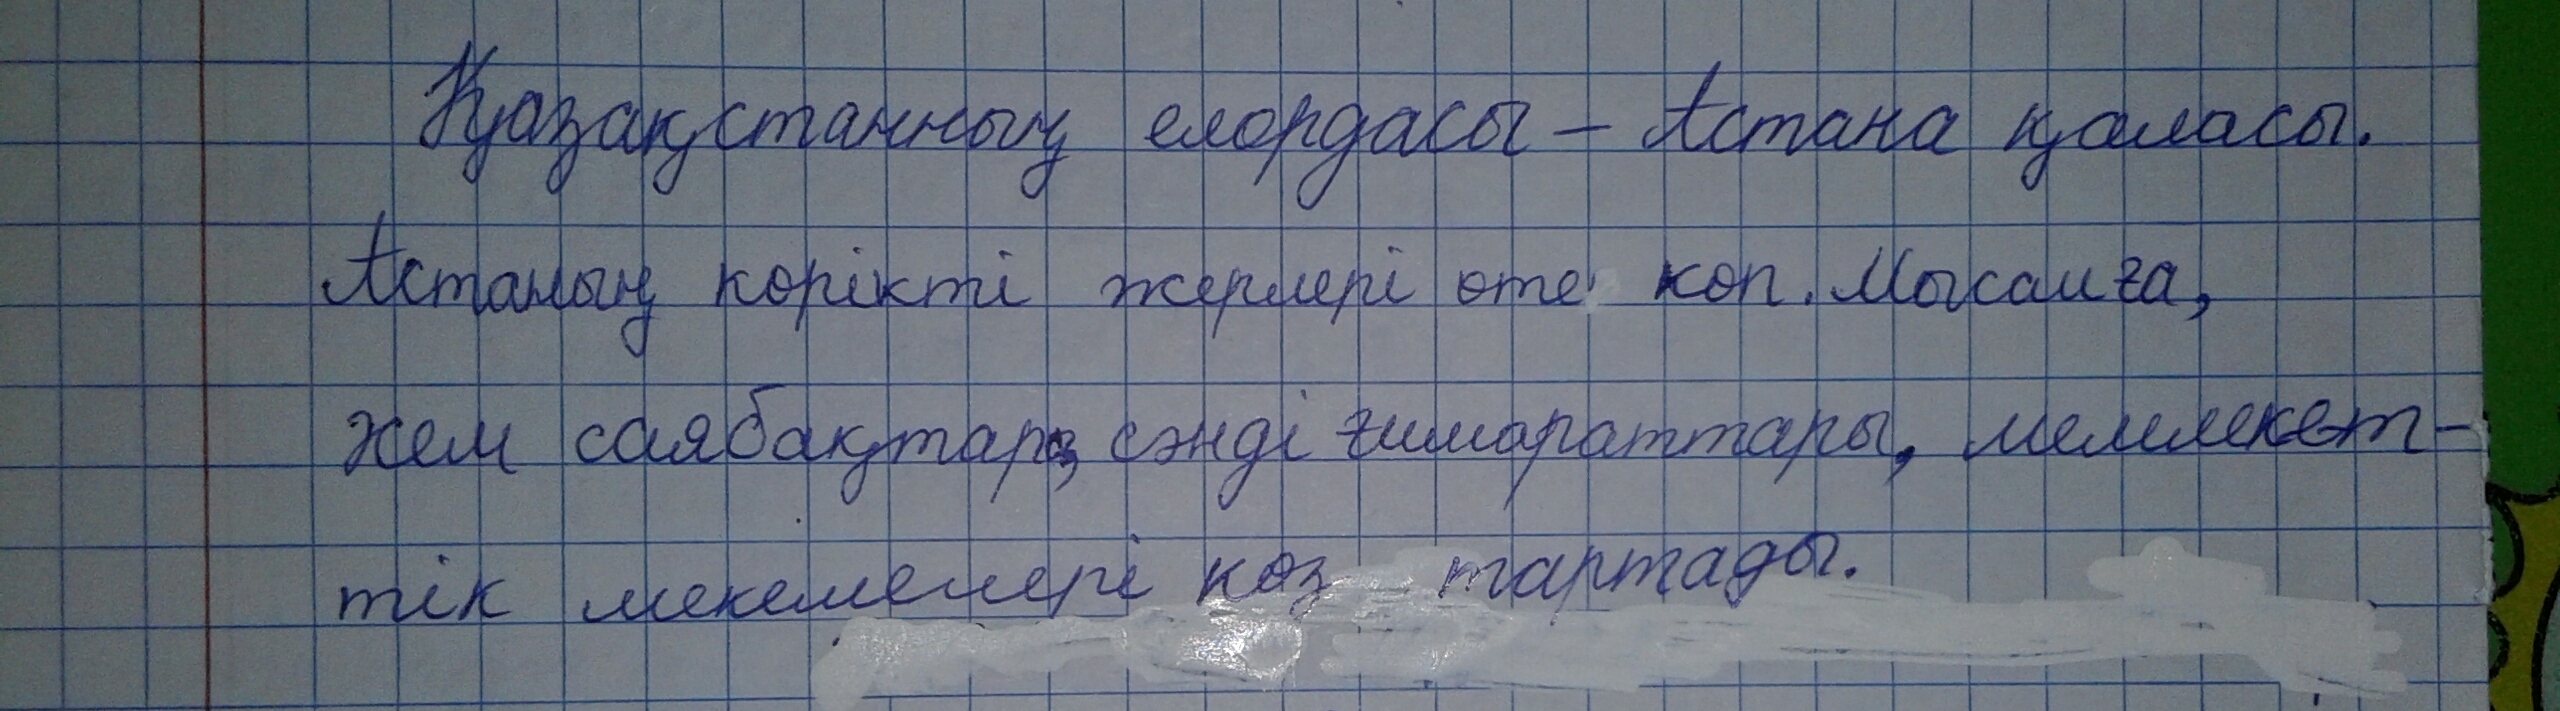 Қазақстанның елордасы – Астана қаласы.
Астаның көрікті жерлері өте көп. Мысалға,
жем саябақтар, сәнді ғимараттары, мемлекет-
тік мекемелері көз тартады.